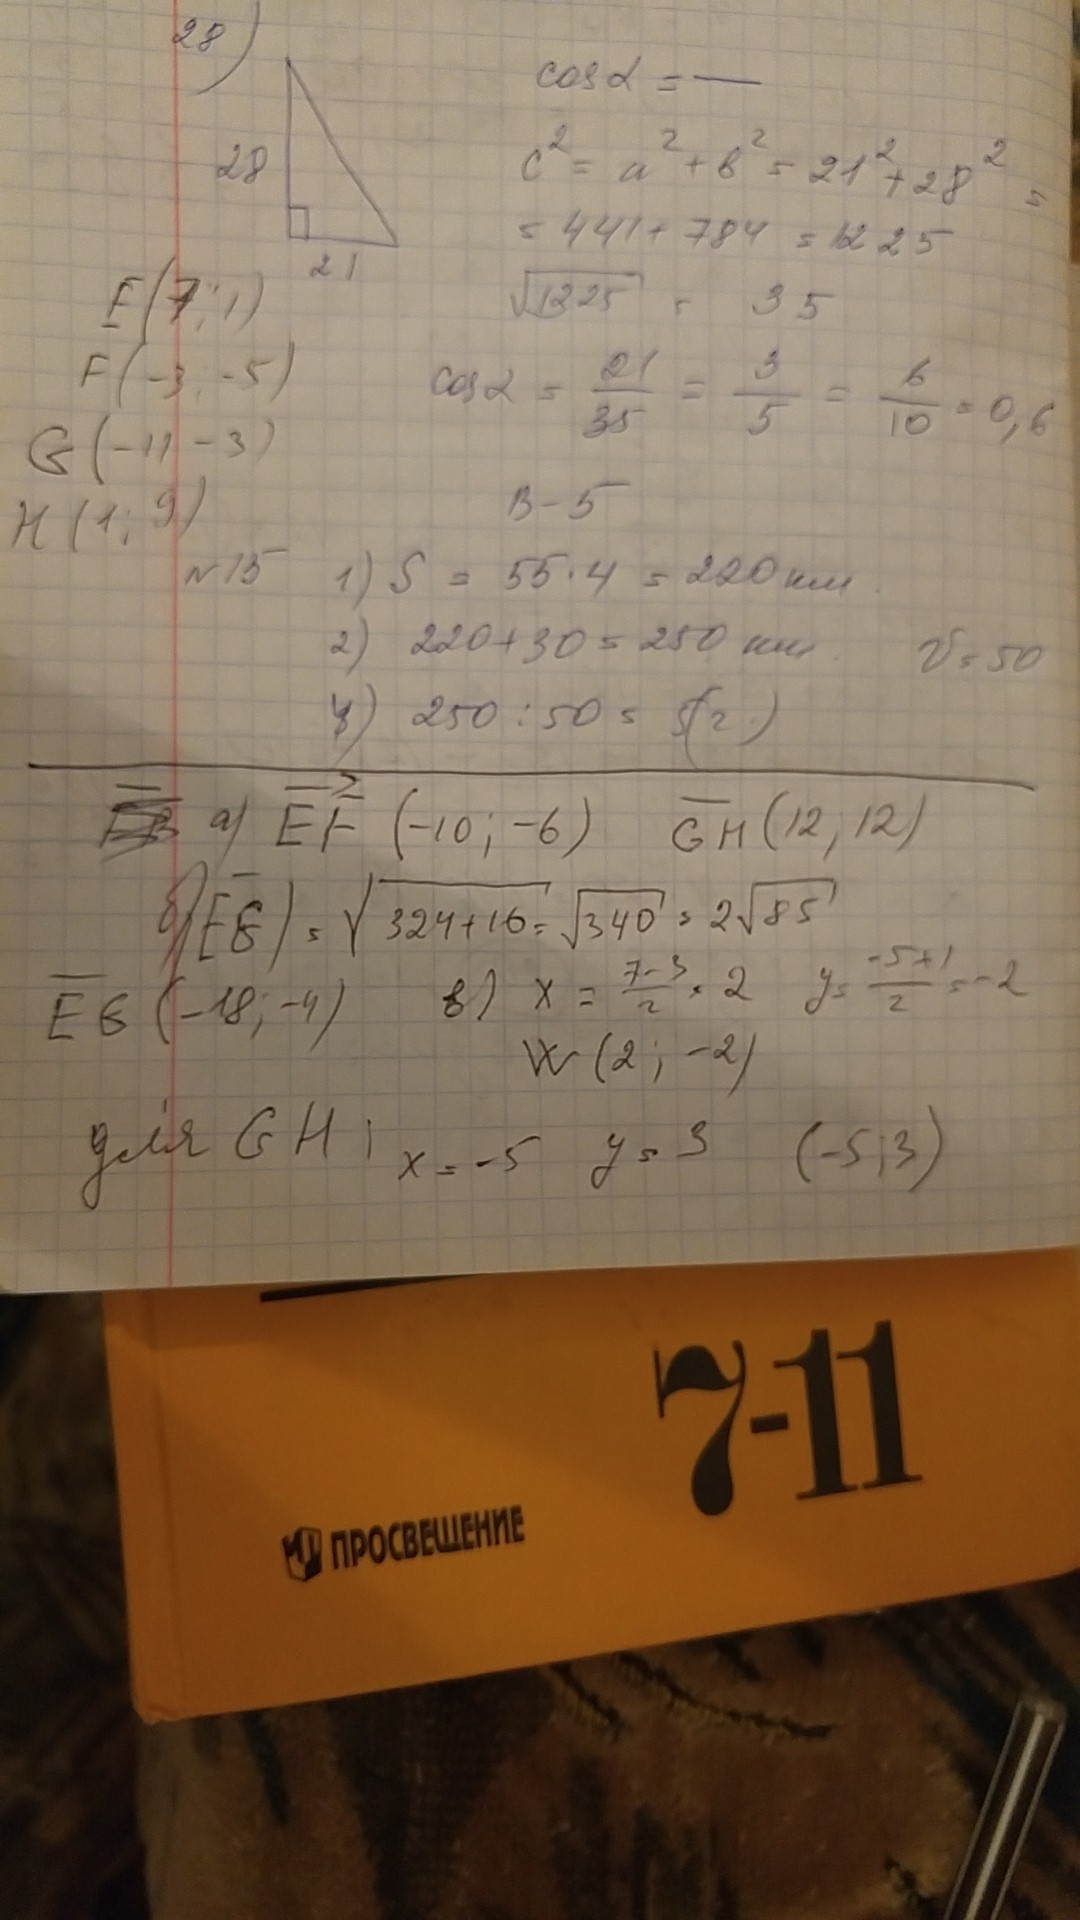 28)
cosα = —
28
21
c² = a² + b² = 21² + 28² =
= 441 + 784 = 1225
√1225 = 35
E(7; 1)
F(-3; -5)
G(-11 -3)
H(1; 9)
cosα = 21/35 = 3/5 = 6/10 = 0,6
В-5
№15 1) S = 55·4 = 220 км.
2) 220+30 = 250 км. V=50
3) 250:50 = 5(г.)
а) EF (-10; -6) GH (12; 12)
б) |EG| = √324+16 = √340 = 2√85
EG (-18; -4) в) x = 7-3/2 = 2 y = -5+1/2 = -2
W(2; -2)
для GH: x = -5 y = 3 (-5; 3)
7-11
ПРОСВЕЩЕНИЕ